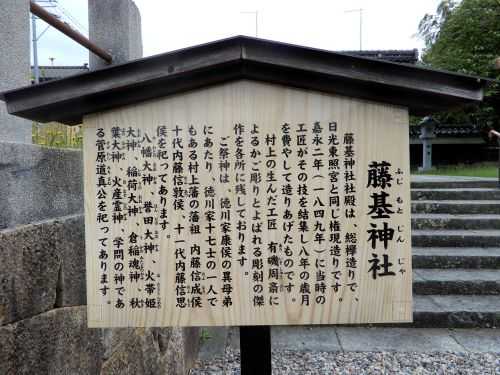 藤基神社
ふじもとじんじゃ
藤基神社社殿は、総欅造りで、
日光東照宮と同じ権現造りです。
嘉永二年(一八四九年)に当時の
工匠がその技を結集し八年の歳月
を費やして造りあげたものです。
村上の生んだ工匠 有磯周斎に
よるかご彫りとよばれる彫刻の傑
作を各所に残しております。
ご祭神は、徳川家康侯の異母弟
にあたり、徳川家十七士の一人で
もある村上藩の藩祖 内藤信成侯
十代内藤信敦侯、十一代内藤信思
侯を祀ってあります。
八幡大神、誉田大神、火帯姫
大神、稲荷大神、倉稲魂神、秋
葉大神、火産霊神、学問の神であ
る菅原道真公を祀ってあります。